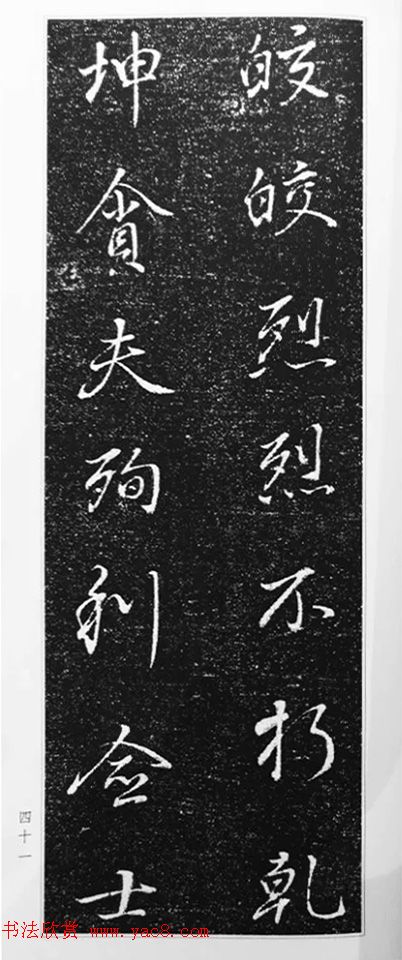 皎皎烈烈不朽乾
坤貪夫殉利佥士
四十一
书法欣赏 www.yac8.com